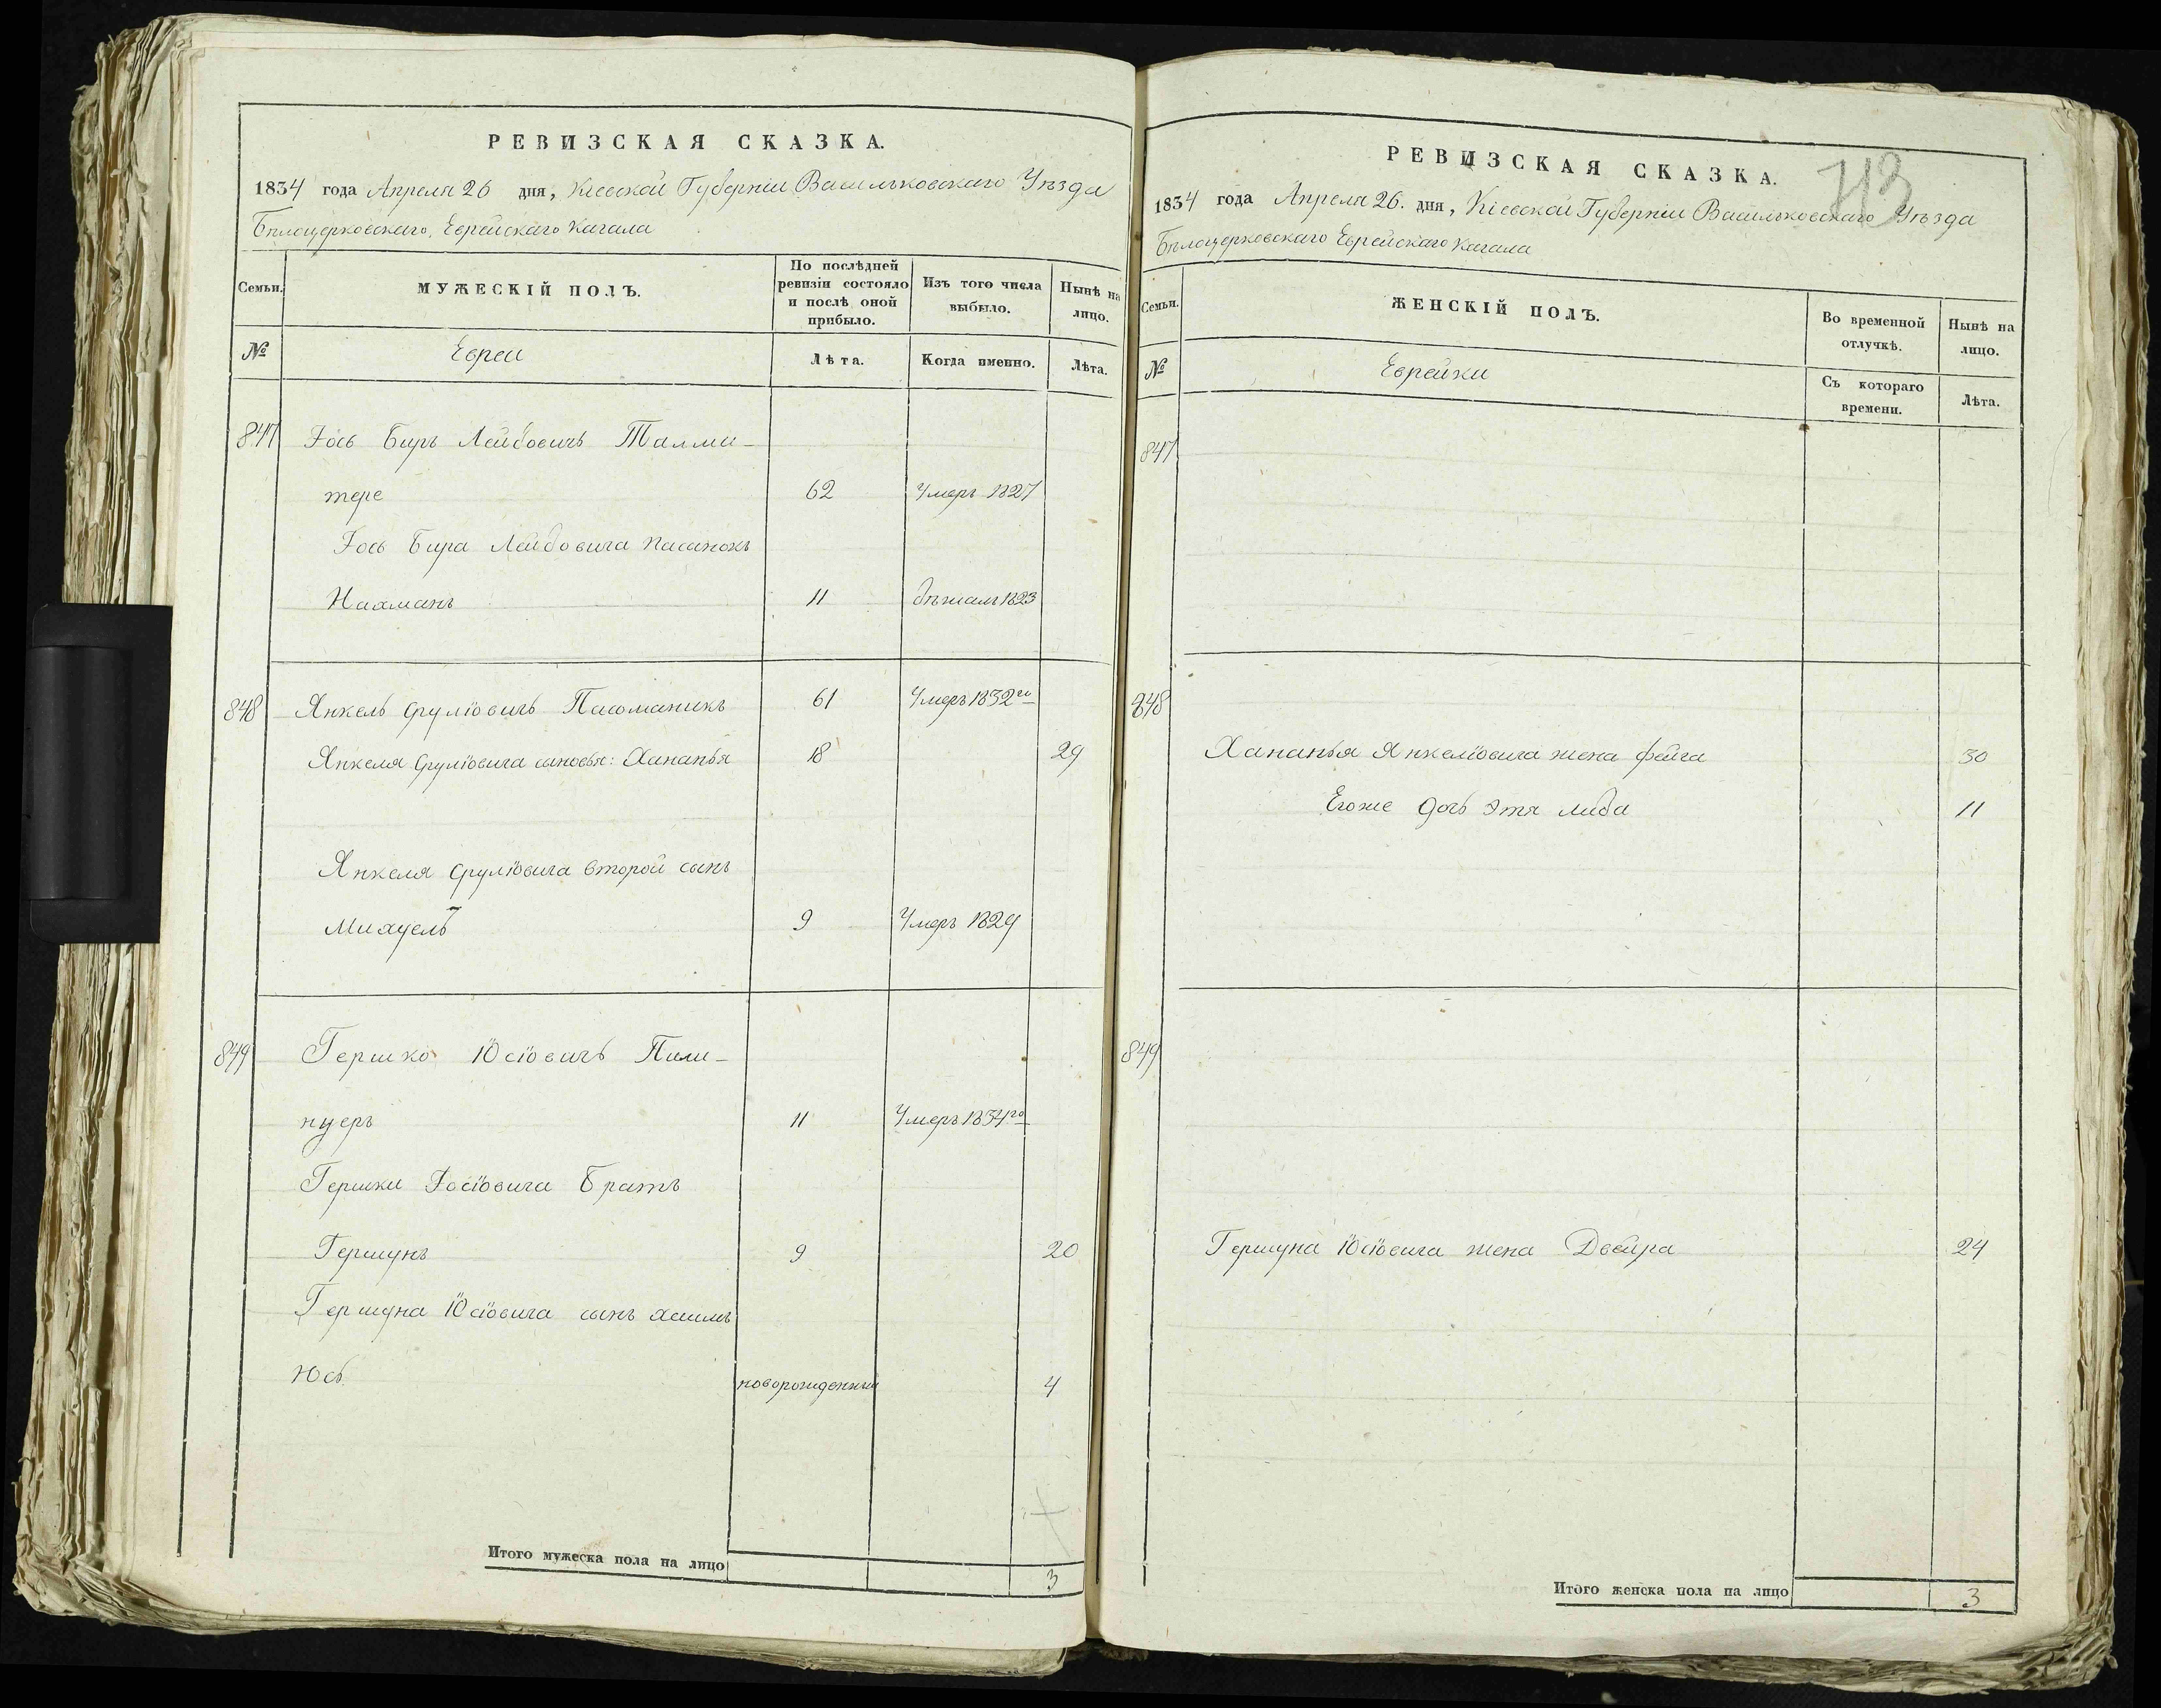 РЕВИЗСКАЯ СКАЗКА.
1834 года Апреля 26 дня, Кіевской Губерніи Васильковскаго Уѣзда
Бѣлоцерковскаго Еврейскаго Кагала
Семьи.
МУЖЕСКІЙ ПОЛЪ.
По послѣдней
ревизіи состояло
и послѣ оной
прибыло.
Изъ того числа
выбыло.
Нынѣ на
лицо.
№
Евреи
Лѣта.
Когда именно.
Лѣта.
847 Іось Беръ Лейбовичъ Талми-
тере 62 Умеръ 1827
Іось Бера Лейбовича пасынокъ
Нахманъ 11 бѣжалъ 1823
848 Янкель Сруліовичъ 61 Умеръ 1832го
Янкеля Сруліовича сыновья: Ханапья 18 29
Янкеля Сруліовича второй сынъ
Михуель 9 Умеръ 1829
849 Гершко Юсіовичъ Пили-
нуеръ 11 Умеръ 1834го
Гершки Іосіовича Братъ
Гершунъ 9 20
Гершуна Юсіовича сынъ Хаимъ
Юсь новорожденный 4
Итого мужеска пола на лицо 3
РЕВИЗСКАЯ СКАЗКА.
713
1834 года Апреля 26. дня, Кіевской Губерніи Васильковскаго Уѣзда
Бѣлоцерковскаго Еврейскаго Кагала
Семьи.
ЖЕНСКІЙ ПОЛЪ.
Во временной
отлучкѣ.
Нынѣ на
лицо.
№
Еврейки
Съ котораго
времени.
Лѣта.
847
848
Ханапья Янкеліовича жена фейга 30
Егоже дочь Этя либа 11
849
Гершуна Юсіовича жена Двейра 24
Итого женска пола на лицо 3